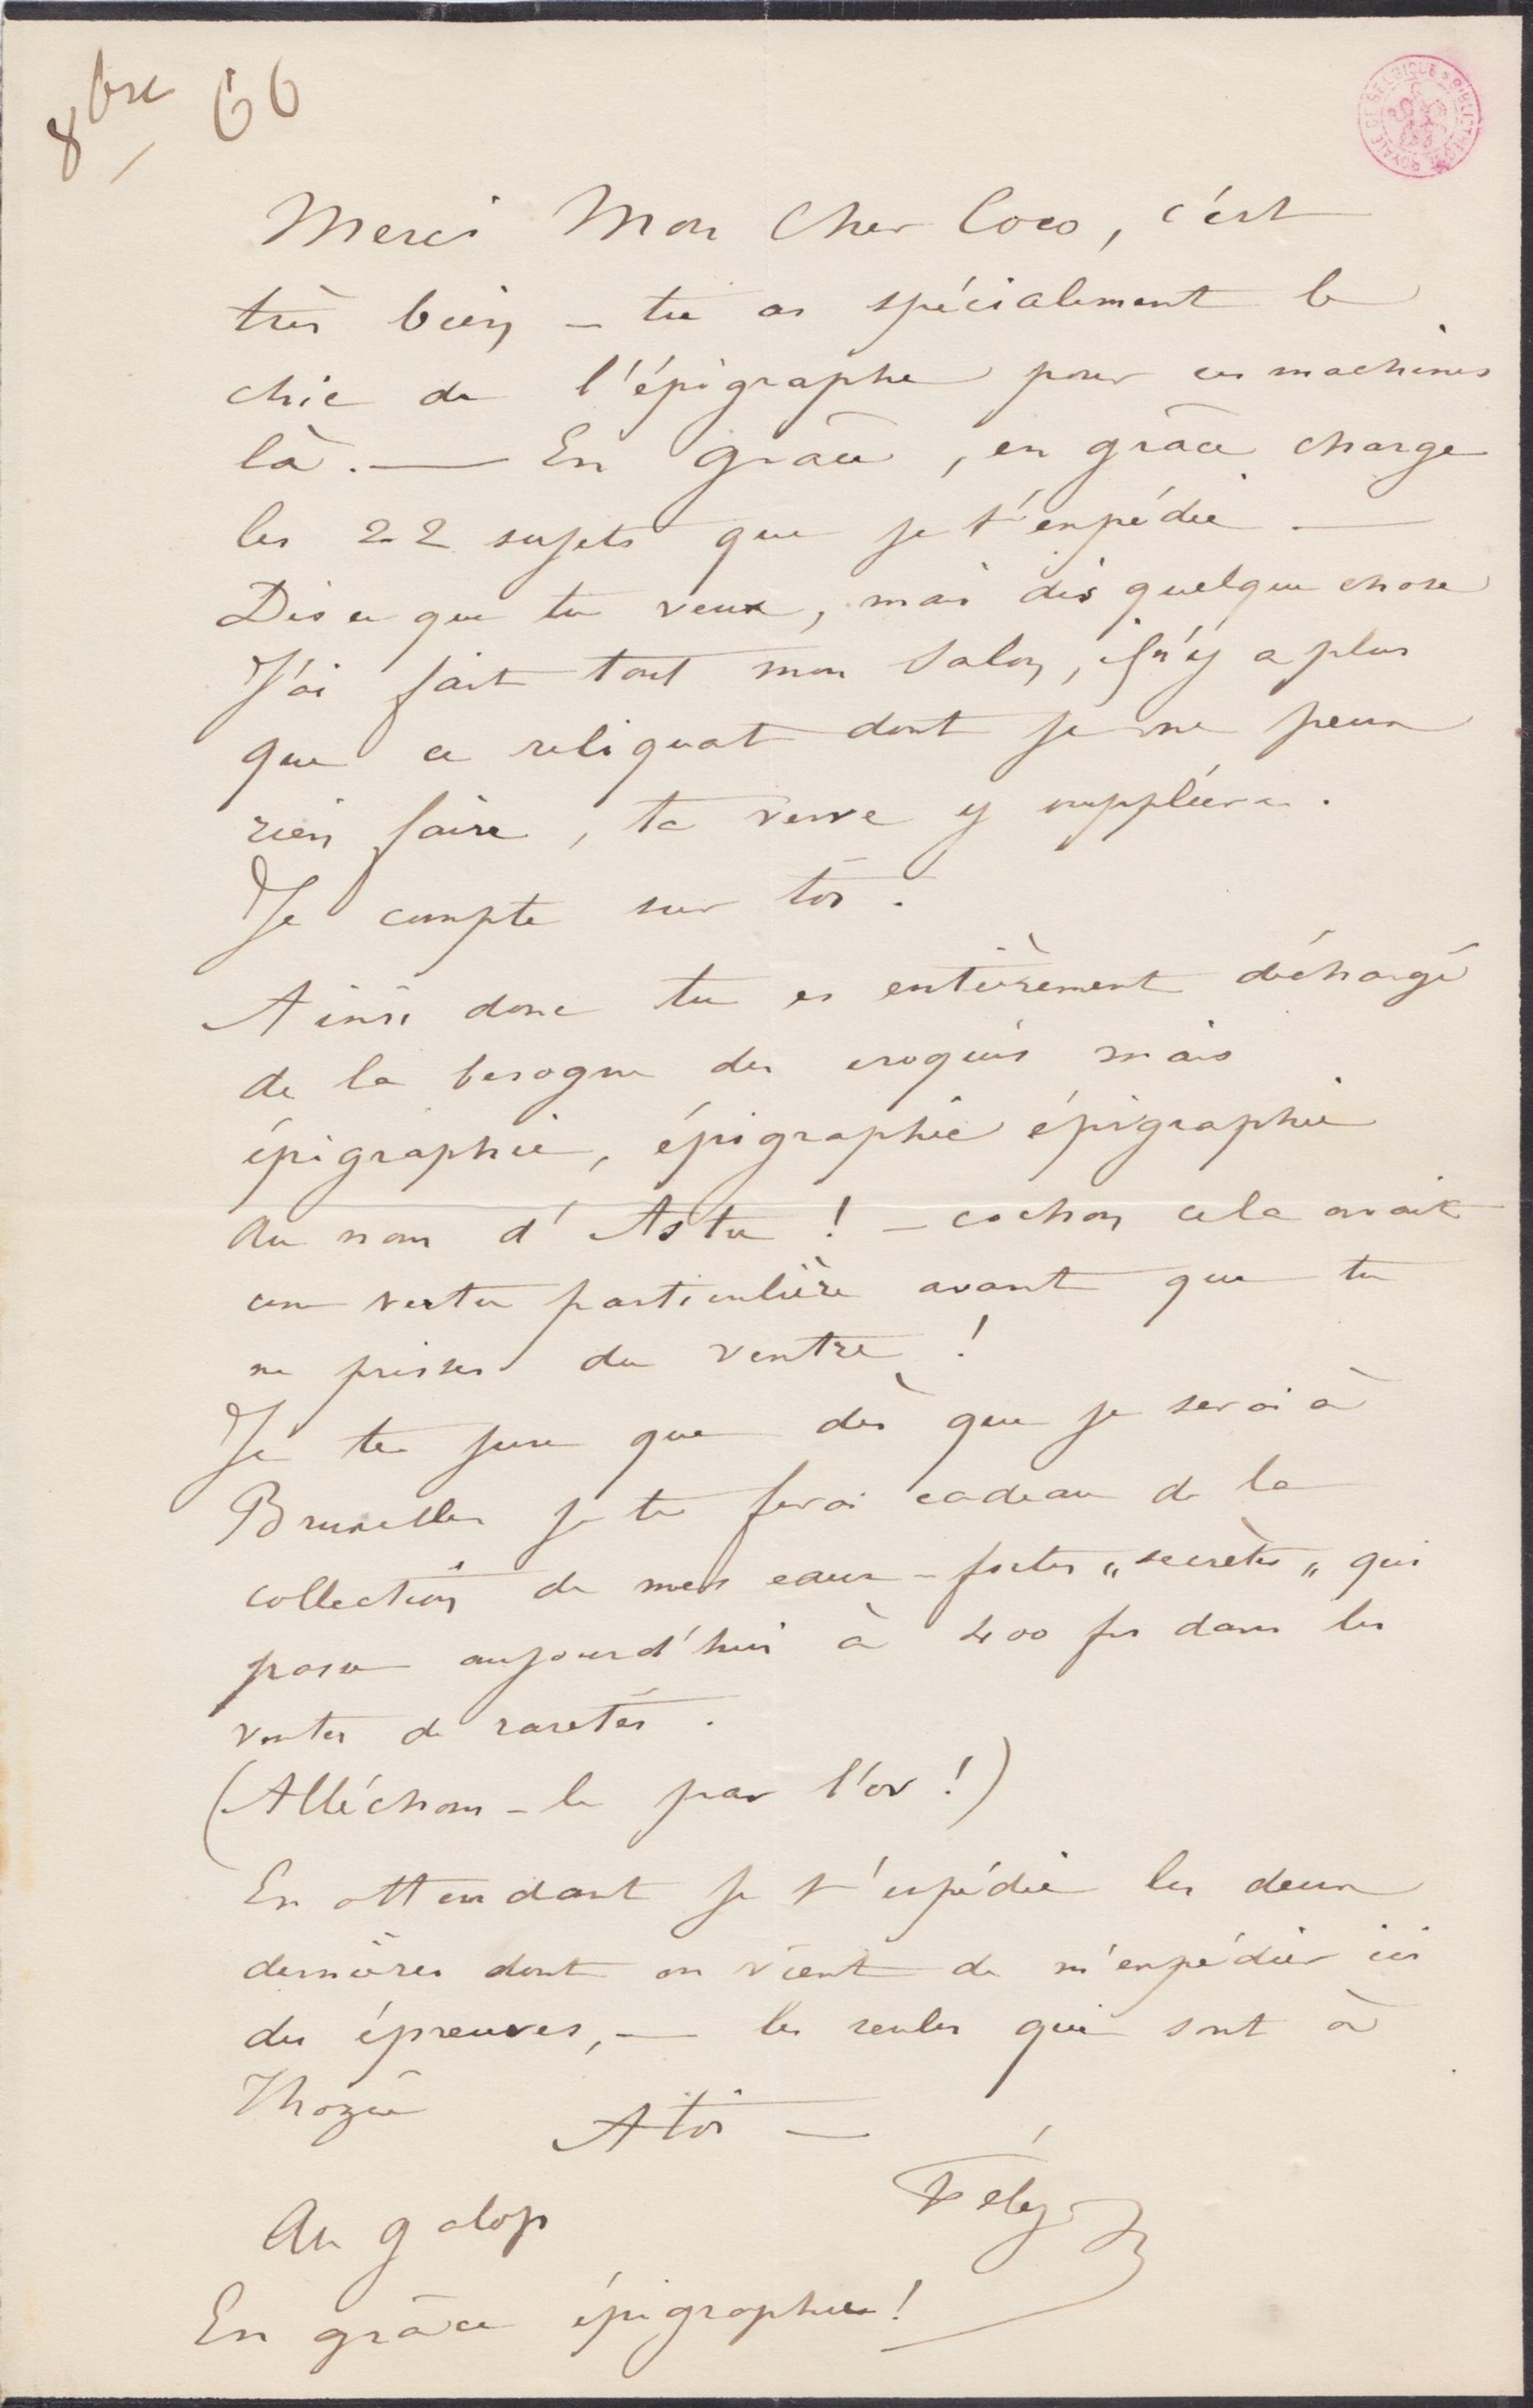 8bre 66
BIBLIOTHEQUE ROYALE DE BELGIQUE
Merci Mon Cher Coco, c'est
très bien – tu as spécialement le
chic de l'épigraphe pour ces machines
là. — En grâce, en grâce charge
les 22 sujets que je t'expédie —
Dis ce que tu veux, mais dis quelque chose
J'ai fait tout mon Salon, il n'y a plus
que ce reliquat dont je ne peux
rien faire, ta verve y suppléera.
Je compte sur toi.
Ainsi donc tu es entièrement déchargé
de la besogne des croquis mais
épigraphie, épigraphie épigraphie
Au nom d'Astu ! – cochon cela avait
une vertu particulière avant que tu
ne prisses du ventre !
Je te jure que dès que je serai à
Bruxelles je te ferai cadeau de la
collection de mes eaux-fortes „secrètes„ qui
passe aujourd'hui à 400 frs dans les
ventes de raretés.
(Alléchons-le par l'or !)
En attendant je t'expédie les deux
dernières dont on vient de m'expédier ici
des épreuves, — les seules qui sont à
Thozée
A toi —
Fély
Au galop
En grâce épigraphies !